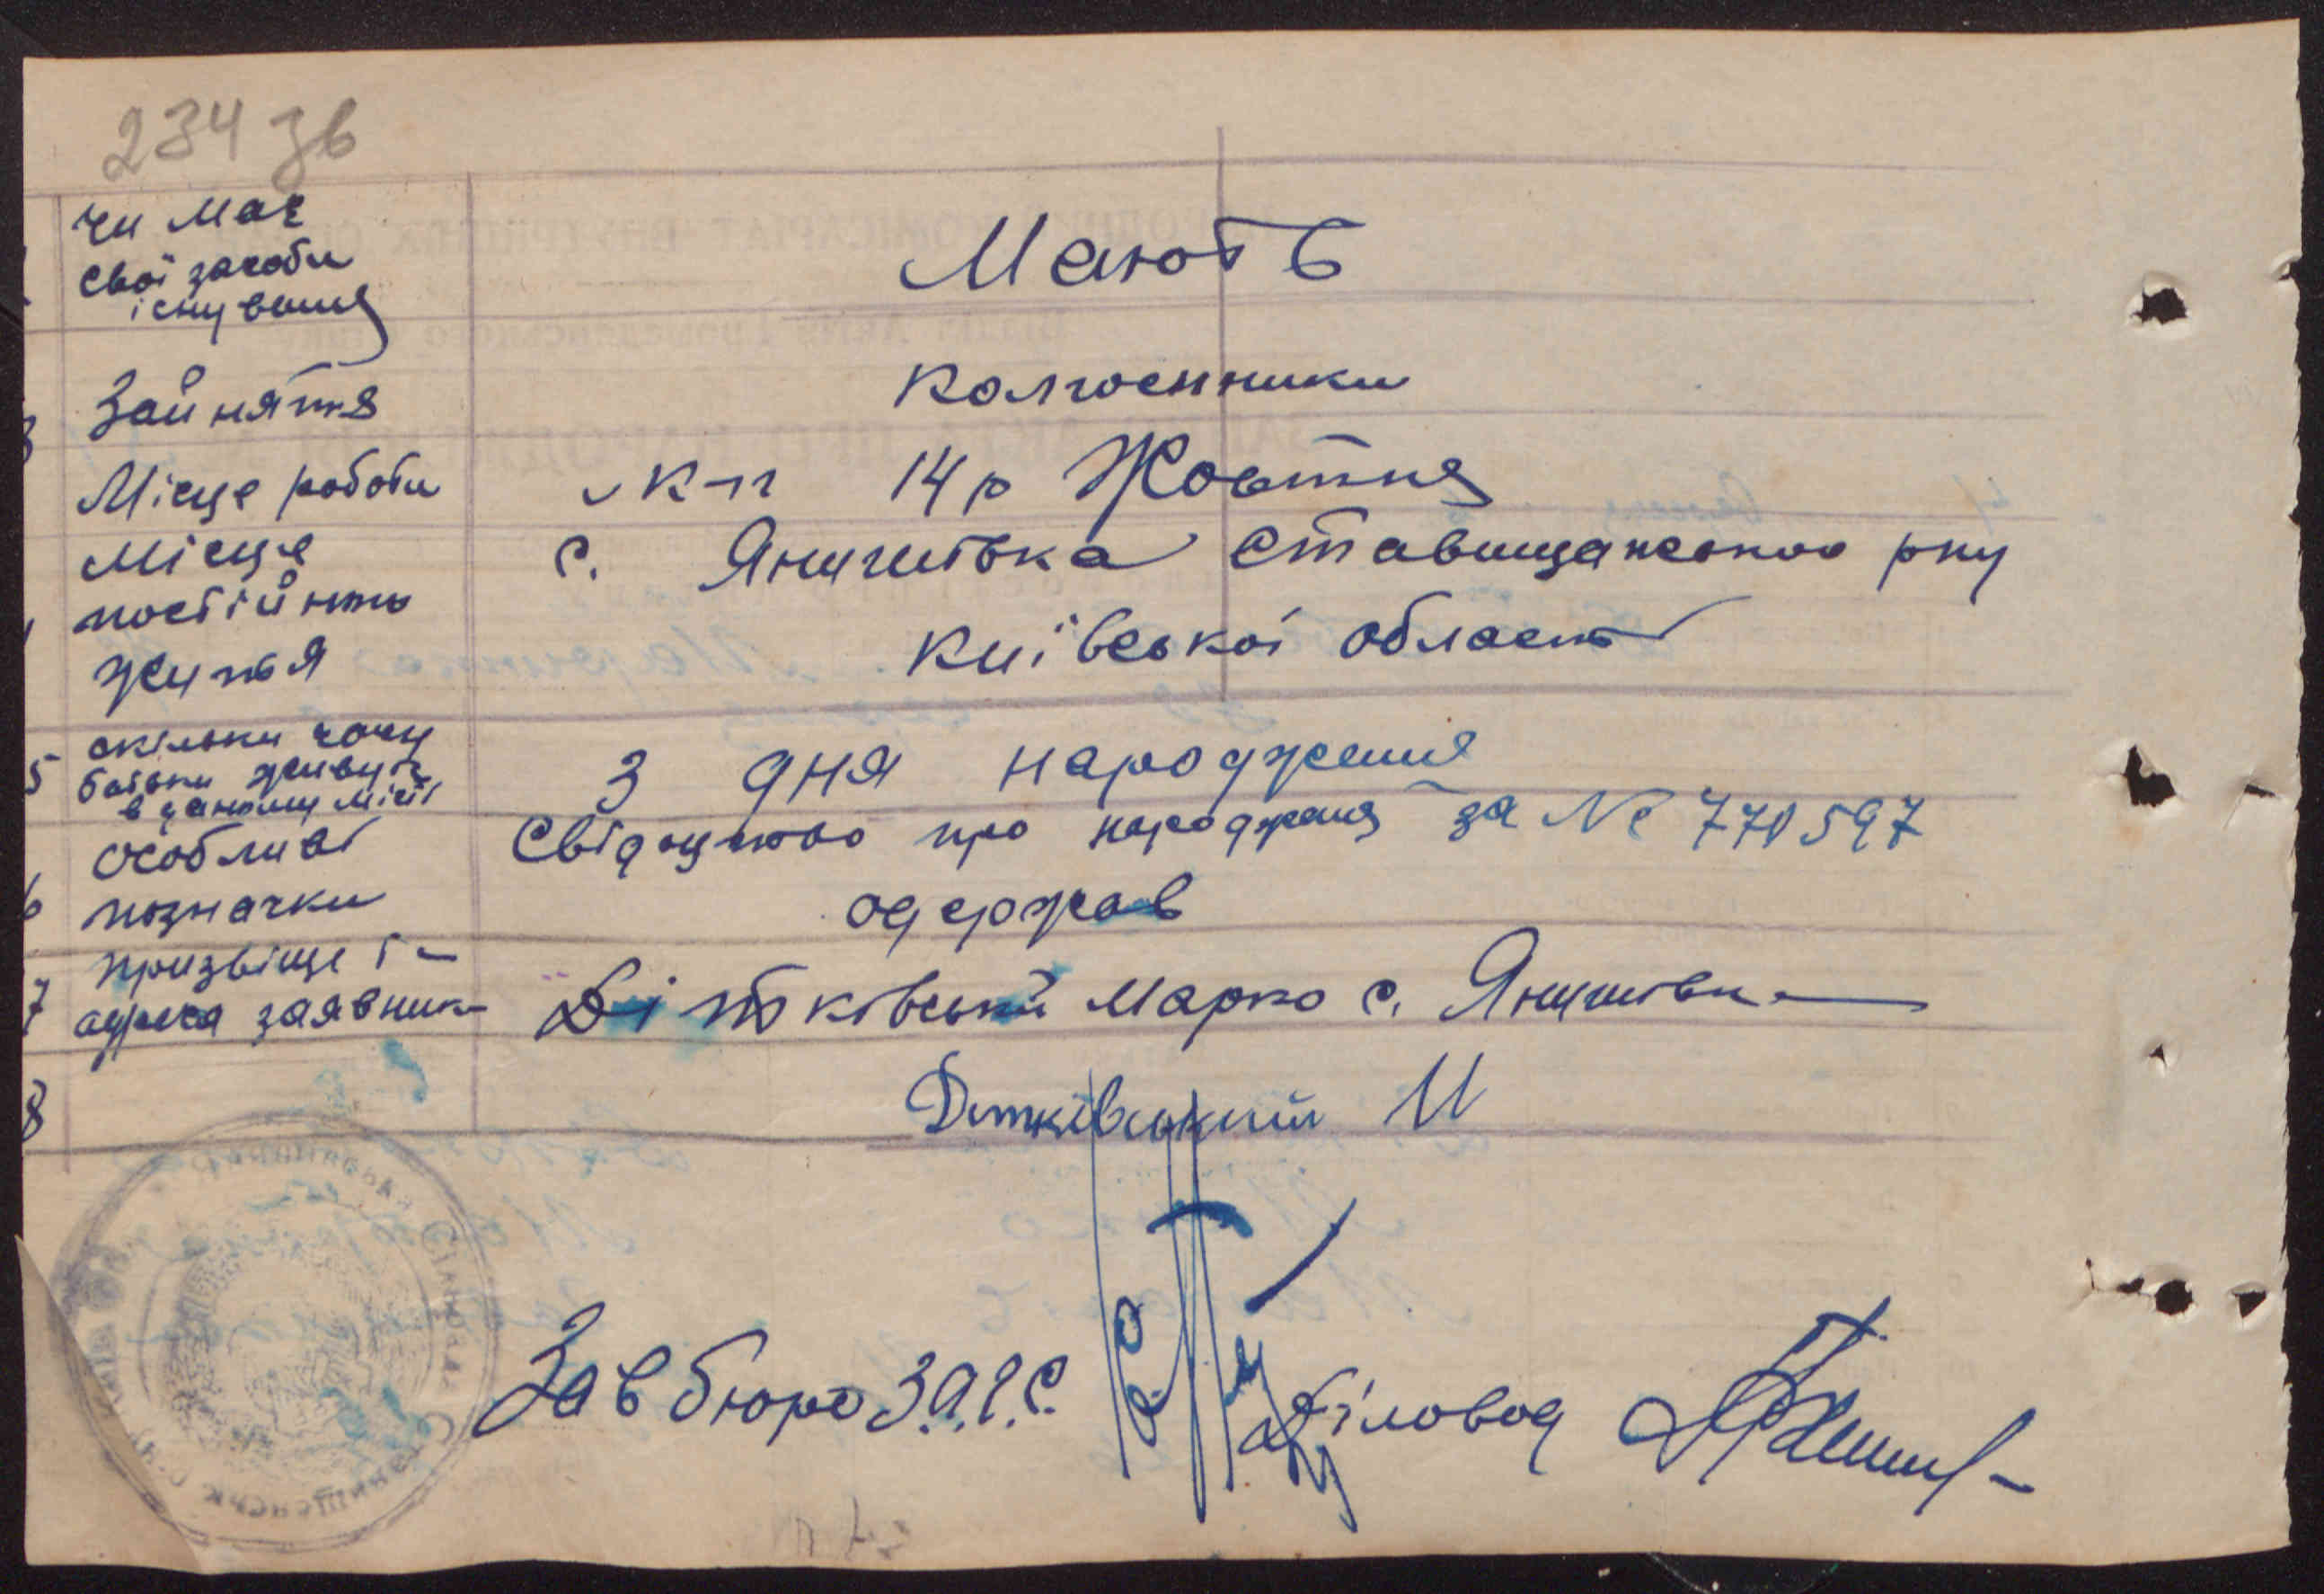 234 зв
чи має
свої засоби
існування
Мають
Зайняття
колгоспники
Місце роботи
к-п 14 р Жовтня
Місце
постійного
життя
с. Янишівка Ставищанського р-ну
Київської області
5 скільки часу
батьки живуть
в даному місті
З дня народження
6 особливі
позначки
Свідоцтво про народження за № 770597
одержав
7 призвіще і
адреса заявник
Дітківський Марко с. Янишівка
8
Дітківський М
Зав бюро З.А.Г.С.
Діловод